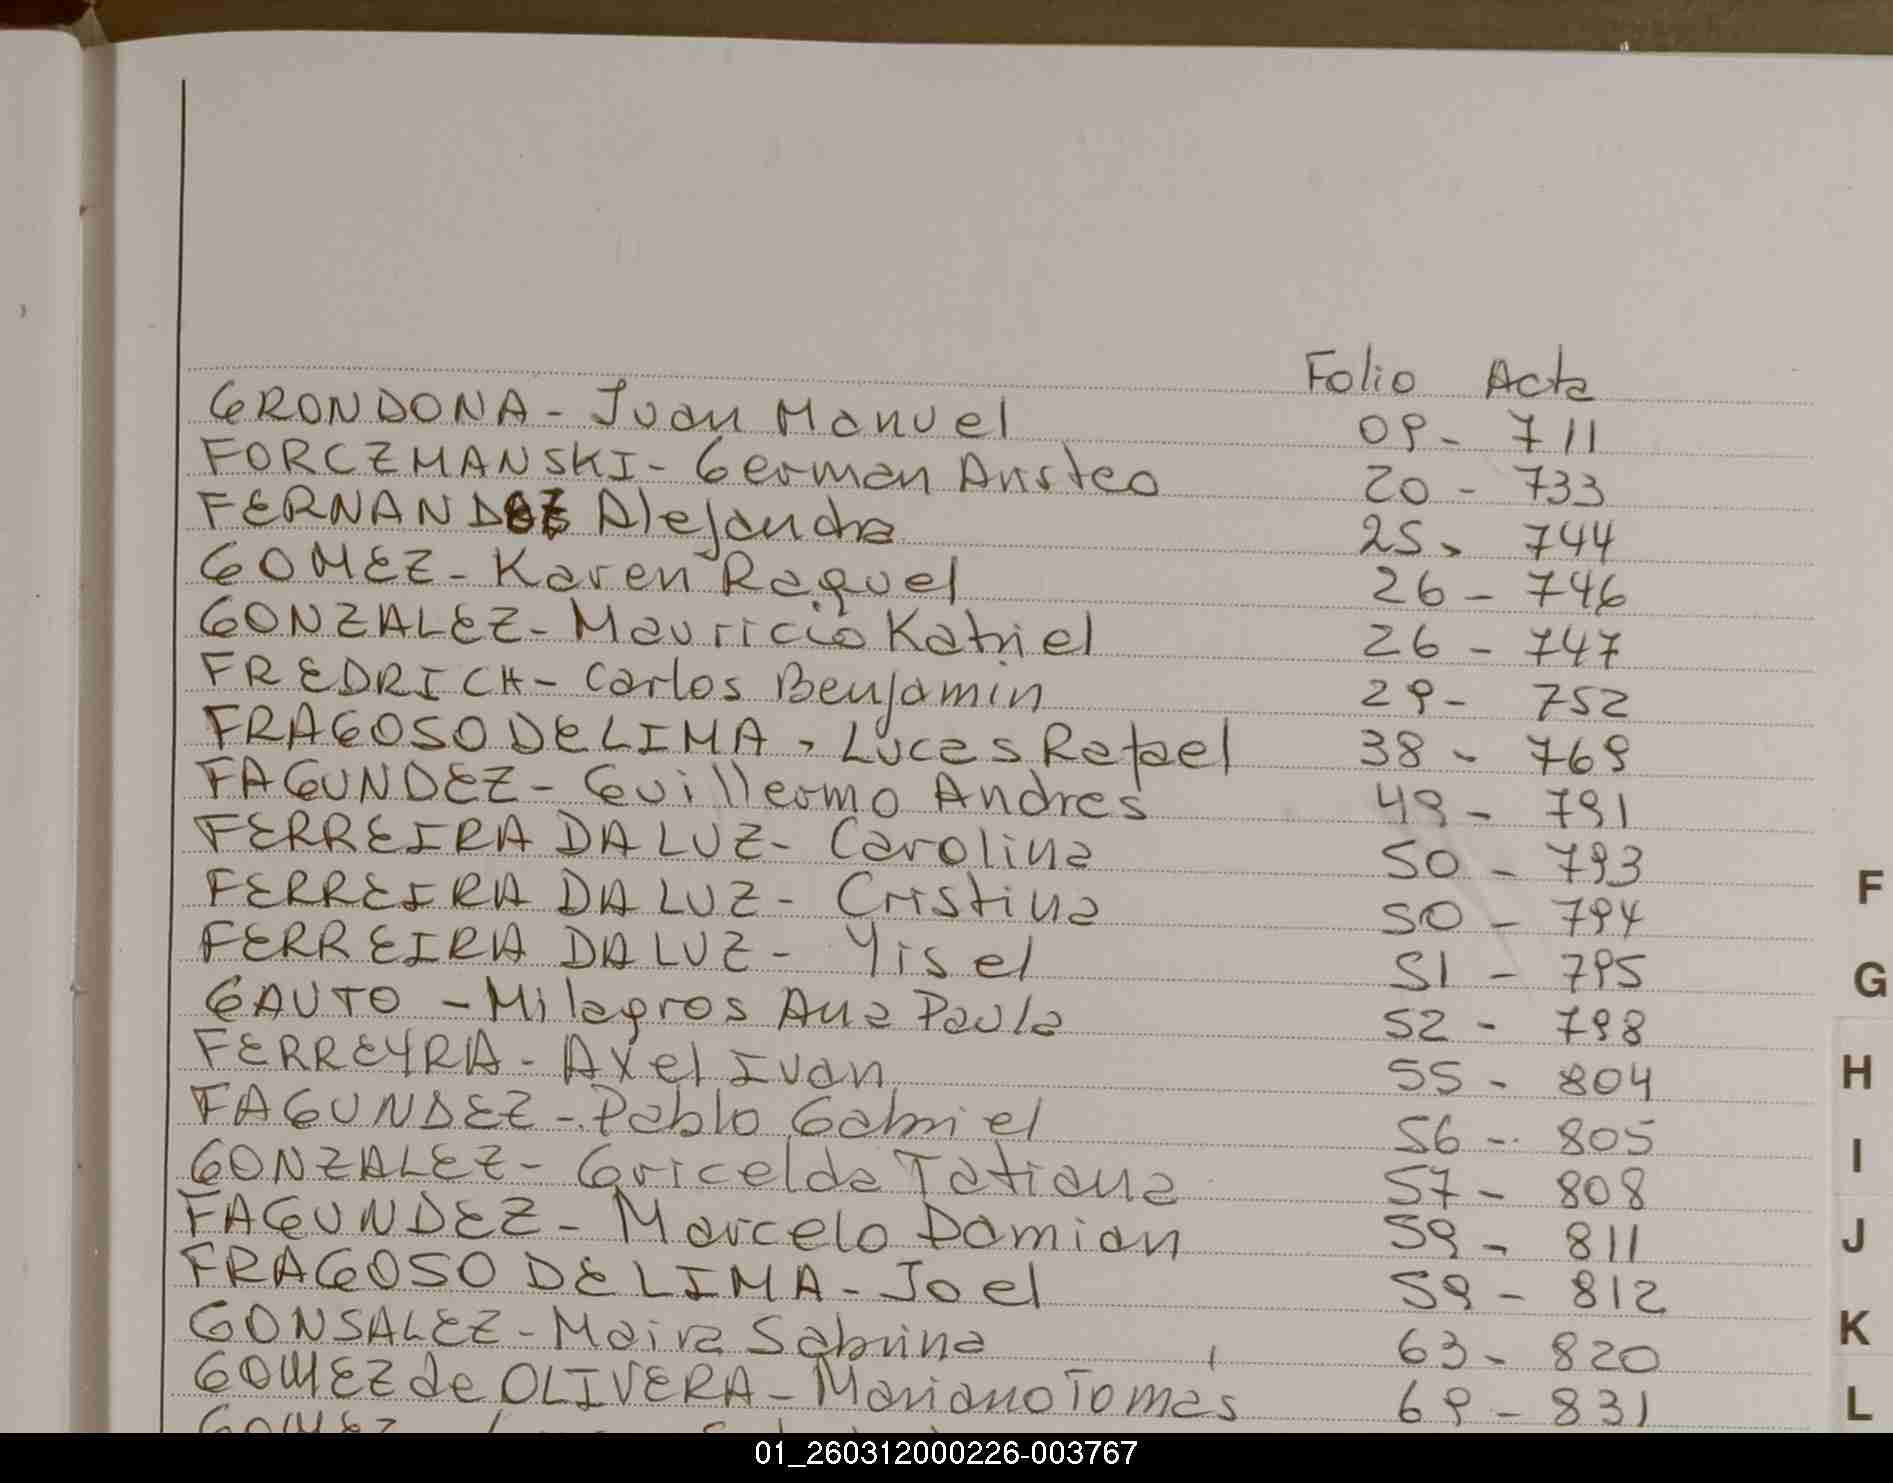 Folio Acta
GRONDONA - Juan Manuel 09 - 711
FORCZMANSKI - German Aristeo 20 - 733
FERNANDEZ Alejandra 25 - 744
GOMEZ - Karen Raquel 26 - 746
GONZALEZ - Mauricio Katriel 26 - 747
FREDRICH - Carlos Benjamin 29 - 752
FRAGOSO DE LIMA - Lucas Rafael 38 - 769
FAGUNDEZ - Guillermo Andres 49 - 791
FERREIRA DA LUZ - Carolina 50 - 793
FERREIRA DA LUZ - Cristina 50 - 794
FERREIRA DA LUZ - Yisel 51 - 795
GAUTO - Milagros Ana Paula 52 - 798
FERREYRA - Axel Ivan 55 - 804
FAGUNDEZ - Pablo Gabriel 56 - 805
GONZALEZ - Gricelda Tatiana 57 - 808
FAGUNDEZ - Marcelo Damian 59 - 811
FRAGOSO DE LIMA - Joel 59 - 812
GONSALEZ - Maira Sabrina 63 - 820
GOMEZ de OLIVERA - Mariano Tomás 69 - 831
GOMEZ
F
G
H
I
J
K
L
01_260312000226-003767